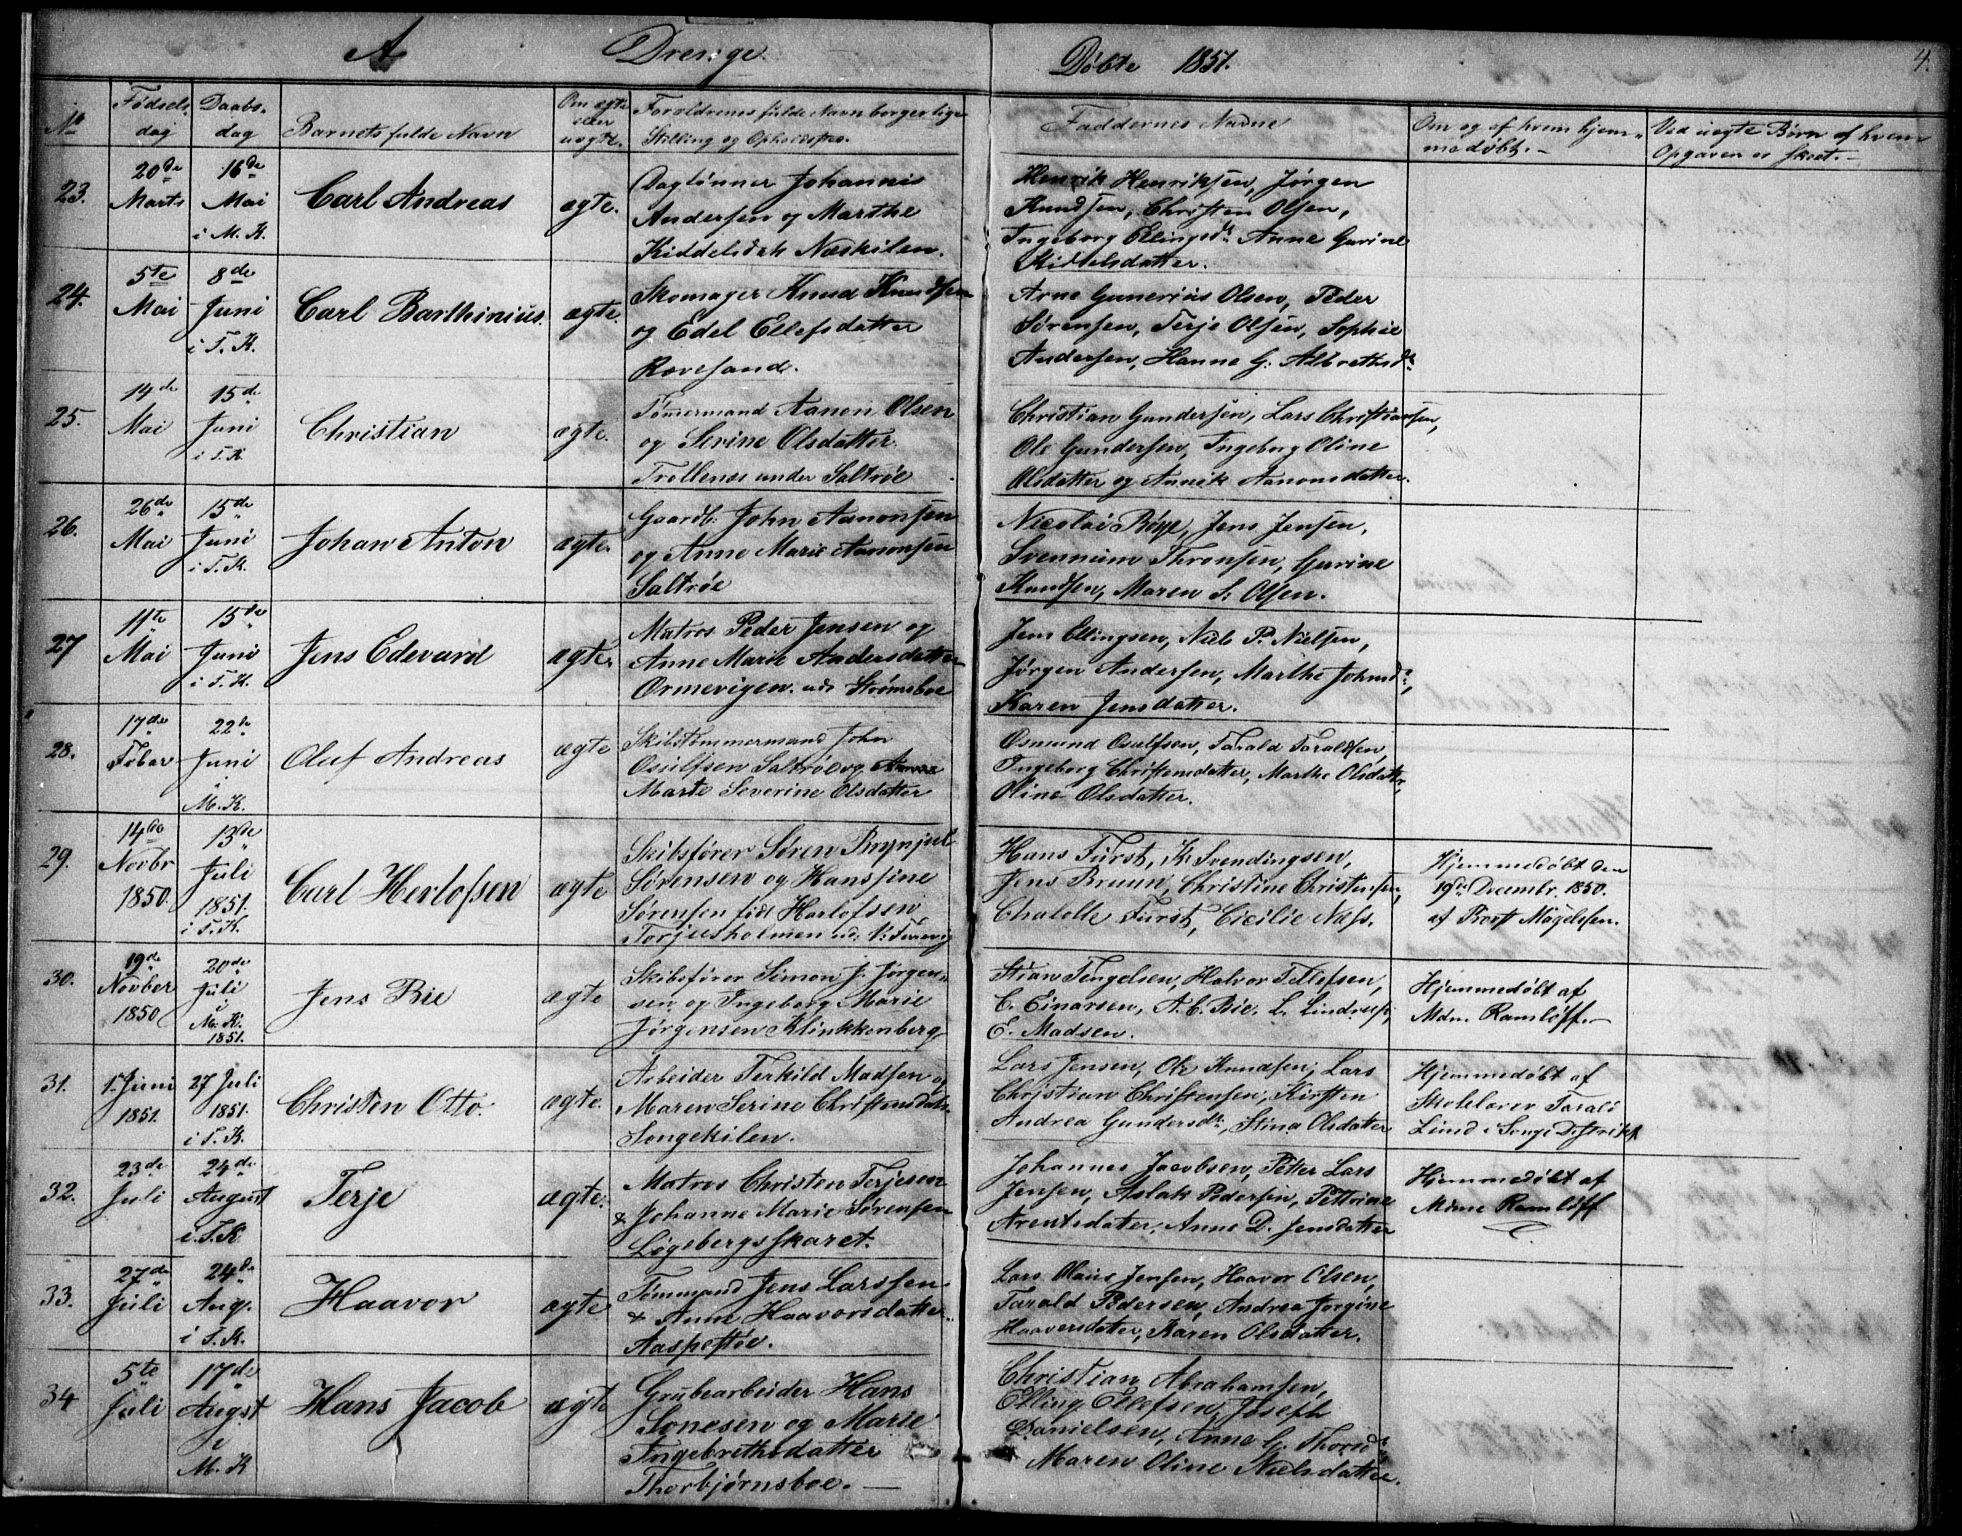 A Drenge.
Døbte 1851.
4.
No
Fødsels dag
Daabs dag
Barnets fulde Navn
Om ægte eller uægte.
Forældrenes fulde Navn borgerlige
Stilling og Opholdssted.
Faddernes Navne
Om og af hvem hjemmedøbt.
Ved uægte Børn af hvem
Opgaven er skeet.
23.
20de Marts
16de Mai i M. K.
Carl Andreas
ægte.
Daglønner Johannis
Andersen og Marthe
Kiddelsdatt Næskilen.
Henrik Henriksen, Jørgen
Knudsen, Christen Olsen,
Ingeborg Ellingsdt. Anne Gurine
Kittelsdatter.
24.
5te Mai
8de Juni i T. K.
Carl Barthinius.
ægte.
Skomager Knud Knudsen
og Edel Ellefsdatter
Rævesand.
Arne Gunerius Olsen, Peder
Sørensen, Terje Olsen, Sophie
Andersen, Hanne G. Albrethsdt.
25.
14de Mai
15de Juni i T. K.
Christian
ægte.
Tømermand Aanon Olsen
og Serine Olsdatter.
Trollenes under Saltrøe
Christian Gundersen, Lars Christiansen,
Ole Gundersen, Ingeborg Oline
Olsdatter og Annik Aanonsdatter.
26.
26de Mai
15de Juni i T. K.
Johan Anton
ægte.
Gaardb. John Aanonsen
og Anne Marie Aanonsen
Saltrøe
Nicolai Bøye, Jens Jensen,
Svennum Thronsen, Gurine
Knudsen, Maren S. Olsen.
27
11te Mai
15de Juni i T. K.
Jens Edevard
ægte.
Matros Peder Jensen og
Anne Marie Andersdatter
Ormevigen. und. Strømsboe
Jens Ellingsen, Niels P. Nielsen,
Jørgen Andersen, Marthe Johnsd.,
Karen Jensdatter.
28.
17de Febar
22de Juni i M. K.
Oluf Andreas
ægte
Skibstømmermand John
Osulfsen Saltrøe og
Marte Severine Olsdatter
Osmund Osulfsen, Tarald Taraldsen,
Ingeborg Christensdatter, Marthe Olsdatter,
Oline Olsdatter.
29.
14de Novbr 1850.
13de Juli 1851. i T. K.
Carl Herlofsen
ægte
Skibsfører Søren Brynjul
Sørensen og Hansine
Sørensen født Harlofsen
Torjusholmen
Hans Fürst, K. Svendingsen,
Jens Bruun, Christine Christensen,
Chalotte Fürst, Cicilie Næss.
Hjemmedøbt den
19de Decembr. 1850.
af Provst Magelssen.
30.
19de Novber 1850
20de Juli i M. K. 1851.
Jens Bie
ægte
Skibsfører Simon J. Jørgensen
og Ingeborg Marie
Jørgensen Klinkkenberg
Stian Tengelsen, Halvor Tellefsen,
C. Einarsen, A. C. Bie, L. Lindrup,
E. Madsen.
Hjemmedøbt af
Mdm. Ramløff.
31.
1. Juni 1851.
27 Juli 1851. i T. K.
Christen Otto.
ægte.
Arbeider Terkild Madsen og
Maren Serine Christensdatt.
Songekilen.
Lars Jensen, Ole Knudsen, Lars
Christian Christensen, Kirsten
Andrea Gundersdt., Stina Olsdatter
Hjemmedøbt af
Skolelærer Tarald
Lund i Songe Distrikt
32.
23de Juli
24de August i T. K
Terje
ægte.
Matros Christen Terjesen
& Johanne Marie Sørensen
Løgebergsskaret.
Johannes Jacobsen, Peter Lars
Jensen, Aslak Pedersen, Pettrine
Arentsdatter, Anne D. Jensdatter
Hjemmedøbt af
Mdme Ramløff
33.
27de Juli
24de Aug. i T. K.
Haavor
ægte
Tømmand Jens Larssen
& Anne Haavorsdatter
Aaspestøe.
Lars Olaus Jensen, Haavor Olsen,
Tarald Pedersen, Andrea Jorgine
Haaversdatter, Karen Olsdatter.
34
5te Juli
17de Augst i M. K
Hans Jacob
ægte
Grubearbeider Hans
Sonesen og Marie
Ingebrethsdatter
Thorbjørnsboe.
Christian Abrahamsen,
Elling Ellefsen, Joseph
Danielsen, Anne G. Thorsdt.
Maren Oline Nielsdatter.